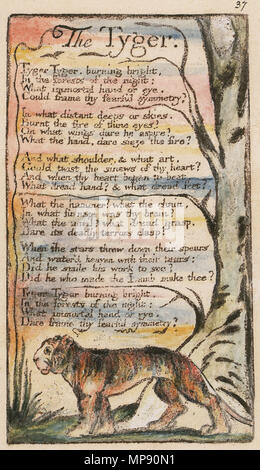 37
The Tyger.
Tyger Tyger, burning bright,
In the forests of the night;
What immortal hand or eye,
Could frame thy fearful symmetry?
In what distant deeps or skies.
Burnt the fire of thine eyes?
On what wings dare he aspire?
What the hand, dare sieze the fire?
And what shoulder, & what art,
Could twist the sinews of thy heart?
And when thy heart began to beat,
What dread hand? & what dread feet?
What the hammer? what the chain,
In what furnace was thy brain?
What the anvil? what dread grasp,
Dare its deadly terrors clasp?
When the stars threw down their spears
And water'd heaven with their tears:
Did he smile his work to see?
Did he who made the Lamb make thee?
Tyger Tyger burning bright,
In the forests of the night:
What immortal hand or eye,
Dare frame thy fearful symmetry?
MP90N1